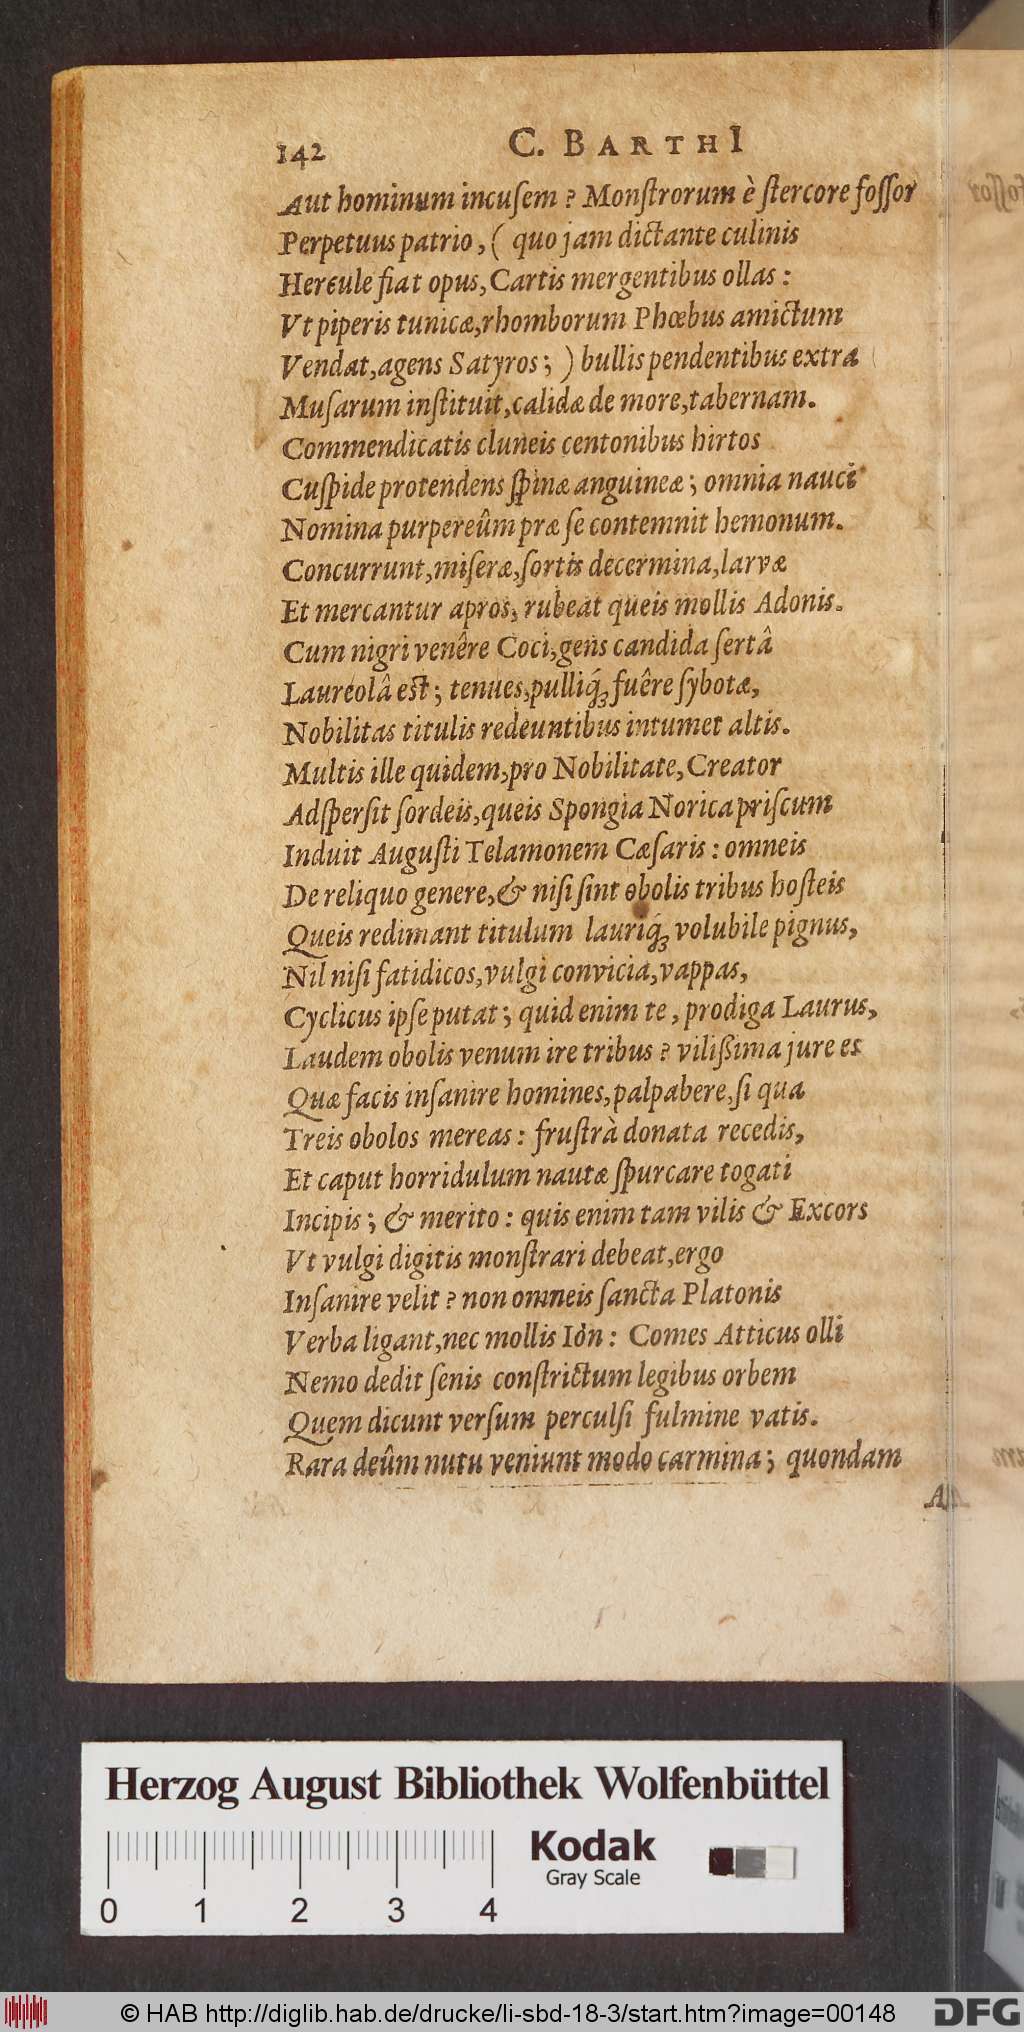 142 C. BARTHI
Aut hominum incuſem ? Monſtrorum è ſtercore foſſor
Perpetuus patrio, ( quo jam dictante culinis
Hercule fiat opus, Cartis mergentibus ollas :
Vt piperis tunicæ, rhomborum Phœbus amictum
Vendat, agens Satyros ; ) bullis pendentibus extra
Muſarum inſtituit, calidæ de more, tabernam.
Commendicatis cluneis centonibus hirtos
Cuſpide protendens ſpinæ anguineæ ; omnia nauci
Nomina purpereûm præ ſe contemnit hemonum.
Concurrunt, miſeræ, ſortis decermina, larvæ
Et mercantur apros, rubeat queis mollis Adonis.
Cum nigri venêre Coci, gens candida ſertâ
Laureolâ eſt ; tenues, pulliq́ꝫ fuêre ſybotæ,
Nobilitas titulis redeuntibus intumet altis.
Multis ille quidem, pro Nobilitate, Creator
Adſperſit ſordeis, queis Spongia Norica priſcum
Induit Auguſti Telamonem Cæſaris : omneis
De reliquo genere, & niſi ſint obolis tribus hoſteis
Queis redimant titulum lauriq́ꝫ volubile pignus,
Nil niſi fatidicos, vulgi convicia, vappas,
Cyclicus ipſe putat ; quid enim te, prodiga Laurus,
Laudem obolis venum ire tribus ? viliſſima jure es
Quæ facis inſanire homines, palpabere, ſi qua
Treis obolos mereas : fruſtrà donata recedis,
Et caput horridulum nautæ ſpurcare togati
Incipis ; & merito : quis enim tam vilis & Excors
Vt vulgi digitis monſtrari debeat, ergo
Inſanire velit ? non omneis ſancta Platonis
Verba ligant, nec mollis Iòn : Comes Atticus olli
Nemo dedit ſenis conſtrictum legibus orbem
Quem dicunt verſum perculſi fulmine vatis.
Rara deûm nutu veniunt modo carmina ; quondam
Herzog August Bibliothek Wolfenbüttel
Kodak
Gray Scale
0 1 2 3 4
© HAB http://diglib.hab.de/drucke/li-sbd-18-3/start.htm?image=00148
DFG